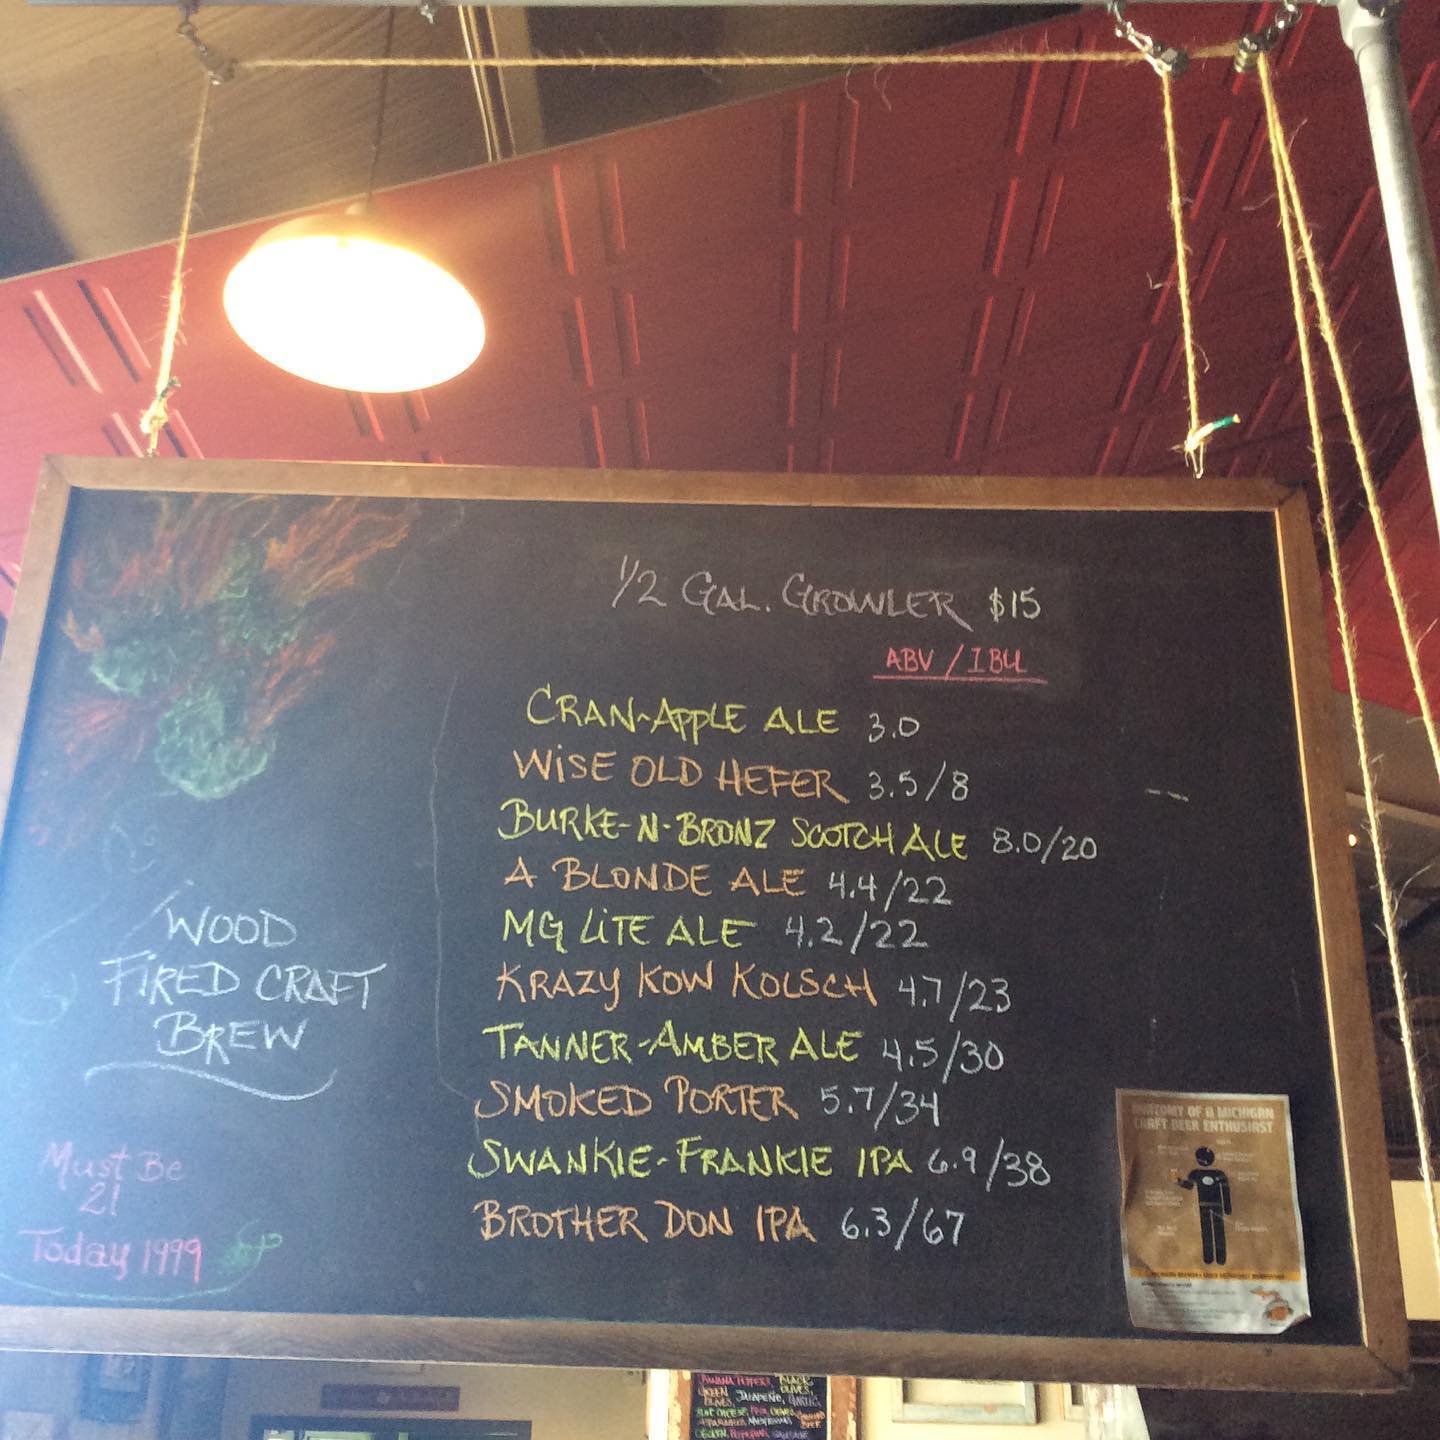 1/2 GAL. GROWLER $15
ABV / IBU
CRAN-APPLE ALE 3.0
WISE OLD HEFER 3.5/8
BURKE-N-BRONZ SCOTCH ALE 8.0/20
A BLONDE ALE 4.4/22
MG LITE ALE 4.2/22
KRAZY KOW KOLSCH 4.7/23
TANNER-AMBER ALE 4.5/30
SMOKED PORTER 5.7/34
SWANKIE-FRANKIE IPA 6.9/38
BROTHER DON IPA 6.3/67
WOOD
FIRED CRAFT
BREW
Must Be
21
Today 1999
ANATOMY OF A MICHIGAN
CRAFT BEER ENTHUSIAST
BANANA PEPPERS, BLACK
GREEN OLIVES,
OLIVES, JALAPEÑO, GARLIC,